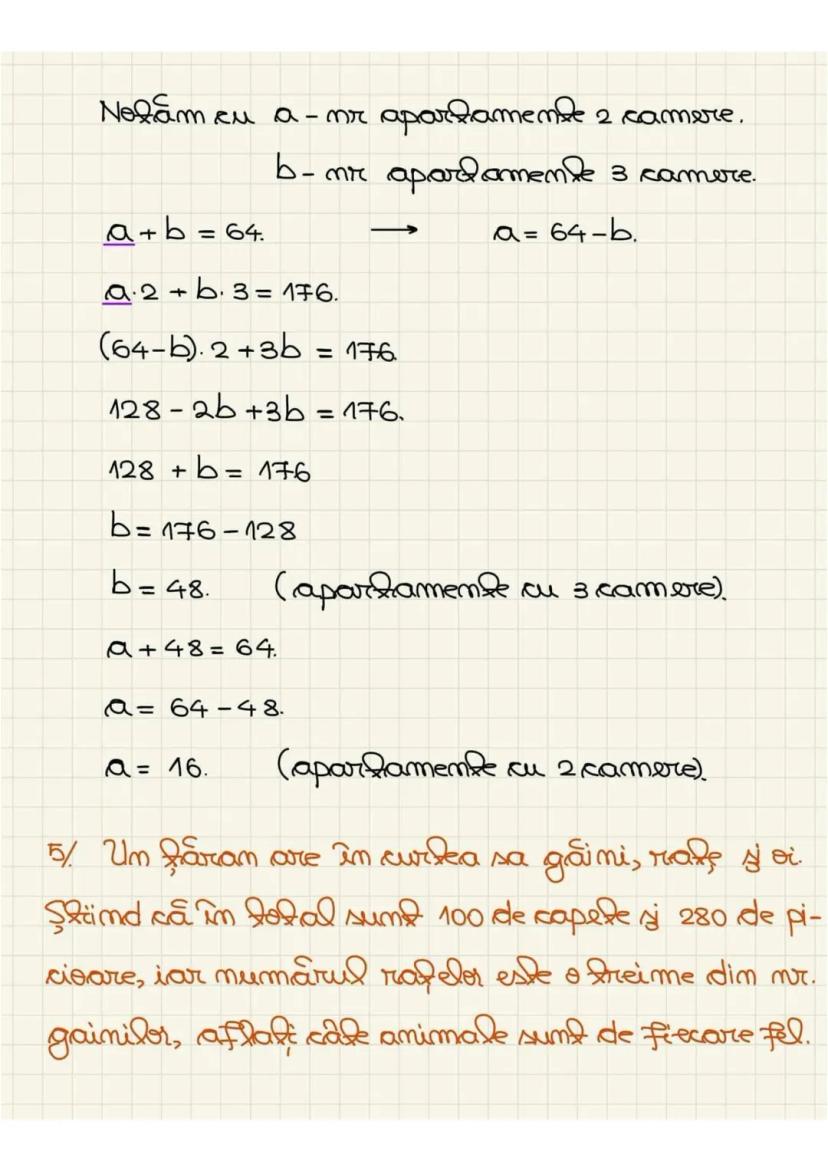 Notăm cu a - nr apartamente 2 camere.
b - nr apartamente 3 camere.
a + b = 64. → a = 64 - b.
a · 2 + b · 3 = 176.
(64 - b) · 2 + 3b = 176
128 - 2b + 3b = 176.
128 + b = 176
b = 176 - 128
b = 48. (apartamente cu 3 camere).
a + 48 = 64.
a = 64 - 48.
a = 16. (apartamente cu 2 camere).
5/. Un țăran are în curtea sa găini, rațe și oi.
Știind că în total sunt 100 de capete și 280 de pi-
cioare, iar numărul rațelor este o treime din nr.
gainilor, aflați câte animale sunt de fiecare fel.